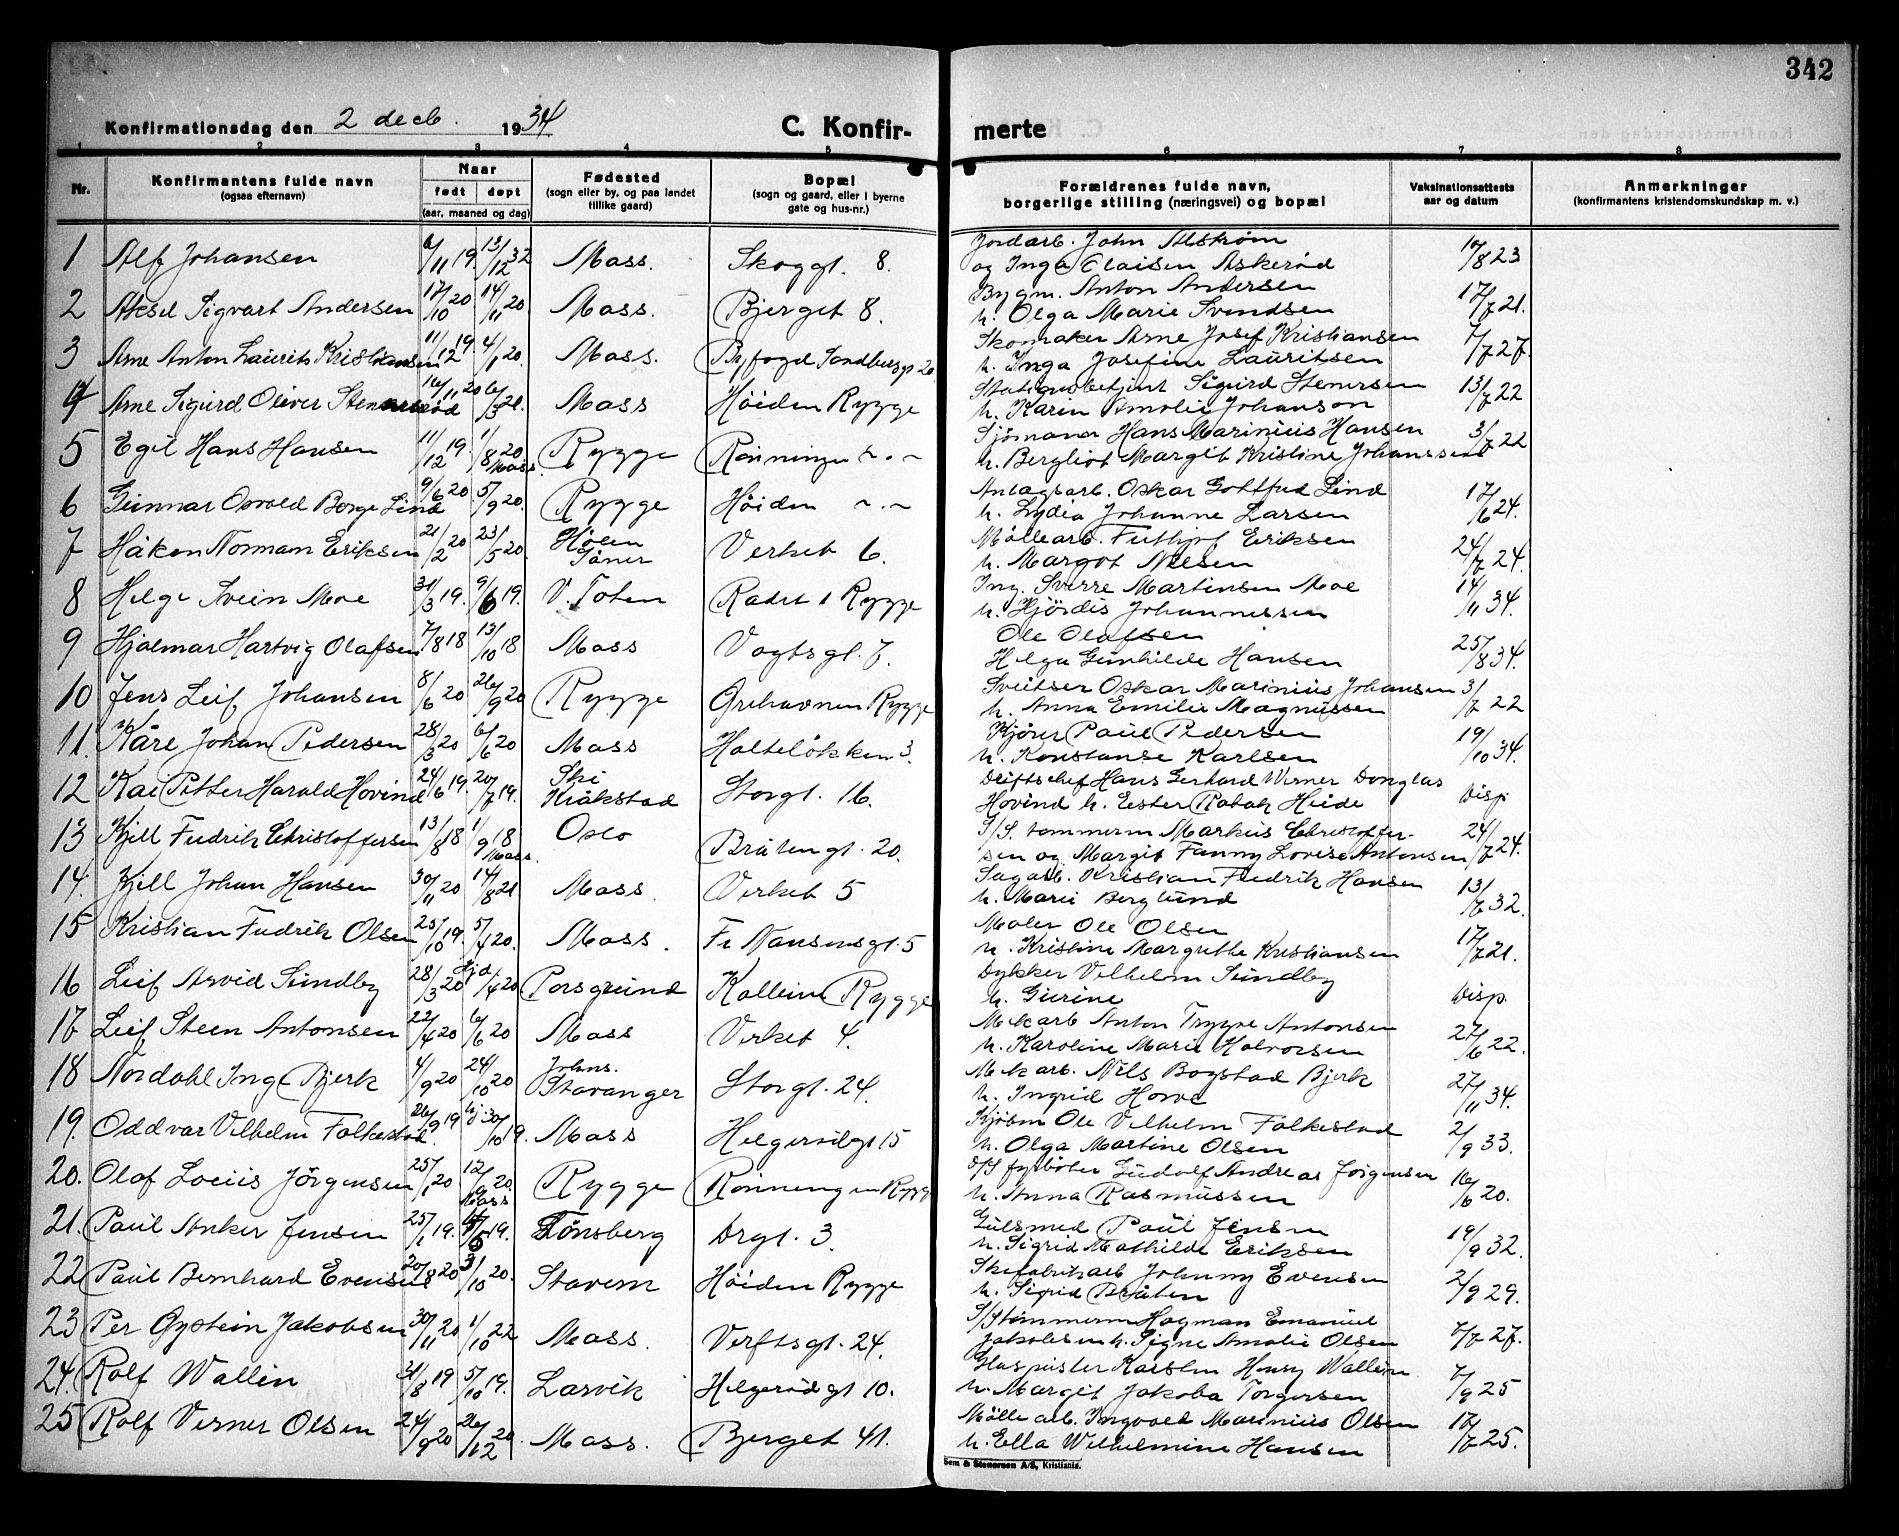 342
Konfirmationsdag den 2 decb. 1934
C. Konfir-
merte
1 2 3 4 5 6 7 8
Nr.
Konfirmantens fulde navn
(ogsaa efternavn)
Naar
født døpt
(aar, maaned og dag)
Fødested
(sogn eller by, og paa landet
tillike gaard)
Bopæl
(sogn og gaard, eller i byerne
gate og hus-nr.)
Forældrenes fulde navn,
borgerlige stilling (næringsvei) og bopæl
Vaksinationsattests
aar og datum
Anmerkninger
(konfirmantens kristendomskundskap m. v.)
1 Alf Johansen 6/11 19. 13/12 32 Moss. Skoggt. 8. Jordarb. John Alstrøm 17/8 23
og Inga Olaisen Askerød
2 Aksel Sigvart Andersen 17/10 20 14/11 20 Moss. Bjerget 8. Bygm. Anton Andersen 17/7 21.
h. Olga Marie Svendsen
3 Arne Anton Laurits Kristiansen 11/12 19. 4/1 20. Moss. Byfogd Sandbergs 20 Skomaker Arne Josef Kristiansen 7/7 27.
h. Inga Josefine Lauritsen
4 Arne Sigurd Oliver 16/11 20 6/3 21. Moss Höiden Rygge Stationsbetjent Sigurd Stenersen 13/7 22
h. Karen Amalie Johanson
5 Egil Hans Hansen 11/12 19. 1/8 20 Moss. Rygge Rönningen ~.~ Sjömann Hans Marinius Hansen 3/7 22
h. Bergliot Margit Kristine Johanssen
6 Gunnar Osvald Borge Lind 9/6 20 5/9 20. Rygge Höiden ~.~ Anlagsarb. Oskar Gottfred Lind 17/6 24.
h. Lydia Johanne Larsen
7 Håkon Norman Eriksen 21/2 20 23/5 20. Hölen
Såner Verket 6. Möllearb. Fritjof Eriksen 24/7 24.
h. Margot Nilsen
8 Helge Svein Moe 31/3 19. 9/6 19. V. Toten Radet i Rygge Ing. Sverre Martinsen Moe 14/11 34.
h. Hjördis Johannessen
9 Hjalmar Hartvig Olafsen 7/8 18 13/10 18 Moss Vogtsgt. 7. Ole Olafsen 25/8 34.
Helga Gunhilde Hansen
10 Jens Leif Johansen 8/6 20 26/9 20 Rygge Örehavnen Rygge Sveitser Oskar Marinius Johansen 3/7 22
h. Anna Emilie Magnussen
11. Kåre Johan Pedersen 28/3 20 6/6 20 Moss Holtelökken 3. Kjörer Paul Pedersen 19/10 34.
h. Konstanse Karlsen
12 Kai Petter Harald Hovind 24/6 19. 20/7 19. Ski
Kråkstad Storgt. 16. Driftschef Hans Gerhard Werner Donglas Disp.
Hovind h. Ester Heide
13 Kjell Fredrik Christoffersen 13/8 18 1/9 18 Moss. Oslo Bråtengt. 20. S/S. tømmerm Markus Christoffer- 24/7 24.
sen og Margit Fanny Lovise Antonsen
14. Kjell Johan Hansen 30/11 20 14/8 21 Moss. Verket 5 Sagarb. Kristian Fredrik Hansen 13/7 32.
h. Marie Berglund
15 Kristian Fredrik Olsen 25/10 19. 5/4 20. Moss. Fr. Nansensgt. 5 Maler Ole Olsen 17/7 21.
h. Kristine Margrethe Kristiansen
16 Leif Arvid Sundby 28/3 20 /4 20 Porsgrund Kollein Rygge Dykker Vilhelm Sundby Disp.
h. Gurine
17 Leif Steen Antonsen 22/4 20 6/6 20 Moss Verket 4. Mek arb Anton Trygve Antonsen 27/6 22.
h. Karoline Marie Halvorsen
18 Nordahl Inge Bjerk 4/9 20 24/10 20 Johns.
Stavanger Storgt. 24. Mek arb. Nils Bogstad Bjerk 27/11 34.
h. Ingrid Hove
19. Oddvar Vilhelm Falkestad 26/9 19 hj. 30/10 19. Moss Helgerödgt 15 Kjöbm Ole Vilhelm Falkestad 2/9 33.
h. Olga Martine Olsen
20. Olaf Louis Jörgensen 25/1 20 12/9 20. Moss Rygge Rönningen Rygge D/S fyrböter Gudolf Andreas Jörgensen 16/6 20.
h. Anna Rasmussen
21. Paul Anker Jensen 25/1 19. /6 19. Tönsberg Drgt. 3. Gulsmed Paul Jensen 19/9 32.
h. Sigrid Mathilde Eriksen
22 Paul Bernhard Evensen 20/8 20 3/10 20. Stavern Höiden Rygge Skofabrikarb Johnny Evensen 2/9 29.
h. Sigrid Bråten
23 Per Øystein Jakobsen 30/11 20 1/10 22 Moss. Verftsgt. 24. S/S tömmerm Hagman Emanuel 7/7 27.
Jakobsen h. Signe Amalie Olsen
24. Rolf Wallin 21/8 19 5/10 19. Larvik Helgerödgt 10. Glaspuster Karsten Henry Wallin 7/9 25
h. Margit Jakoba Torgersen
25 Rolf Verner Olsen 24/9 20 26/12 20. Moss. Bjerget 41. Mölle arb. Ingvald Marinius Olsen 17/7 25.
h. Ella Wilhelmine Hansen
Sem & Stenersen A/S, Kristiania.